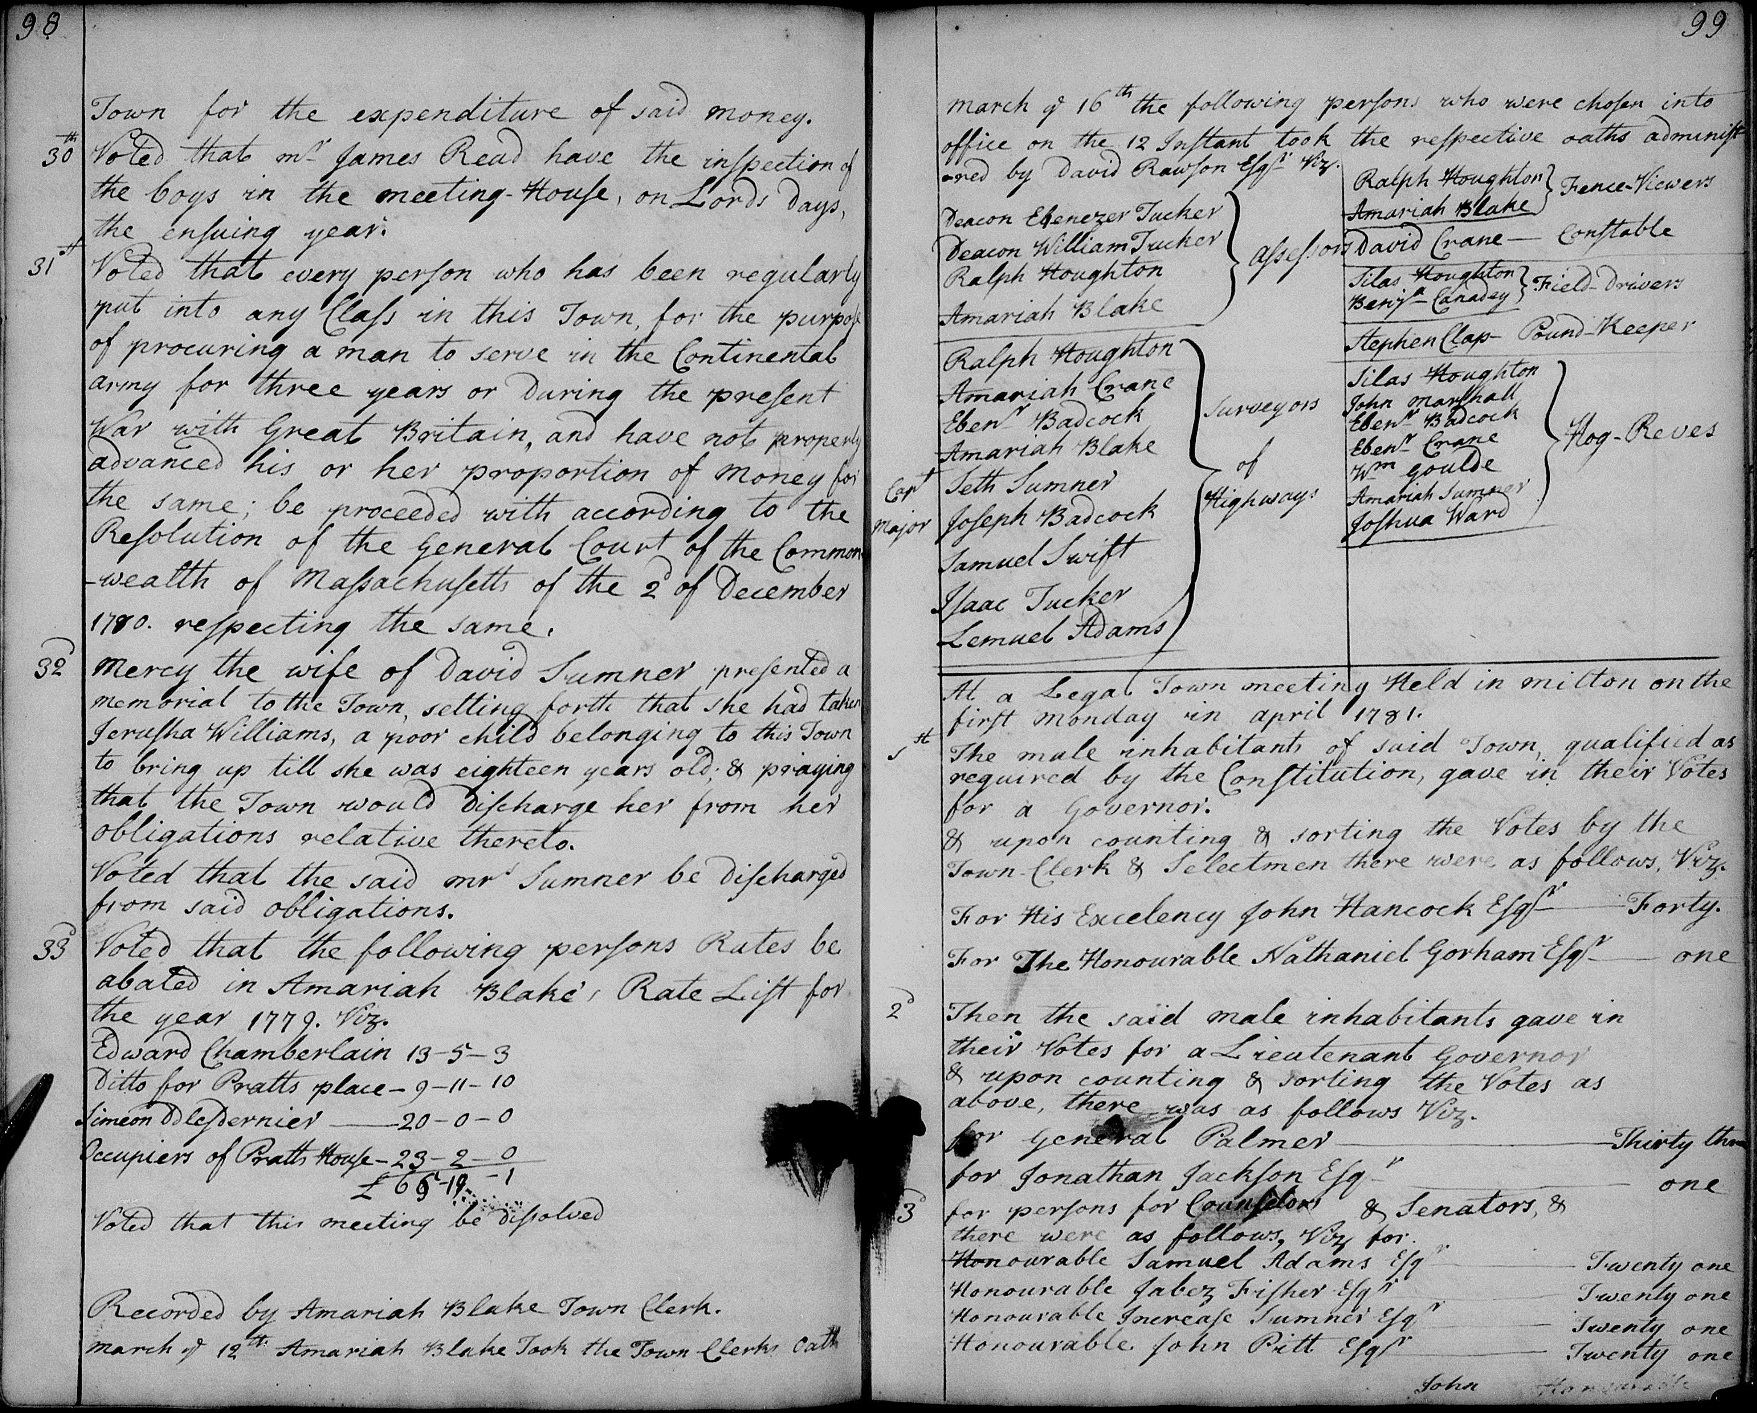 98
Town for the expenditure of said money.
30th Voted that mr James Read have the inspection of
the boys in the meeting-House, on Lords days,
the ensuing year.
31st Voted that every person who has been regularly
put into any Class in this Town, for the purpose
of procuring a man to serve in the Continental
army for three years or During the present
War with Great Britain, and have not properly
advanced his or her proportion of money for
the same; be proceeded with according to the
Resolution of the General Court of the Common
-wealth of Massachusetts of the 2d of December
1780. respecting the same.
32d Mercy the wife of David Sumner presented a
memorial to the Town, setting forth that she had taken
Jerusha Williams, a poor child belonging to this Town
to bring up till she was eighteen years old; & praying
that the Town would discharge her from her
obligations relative thereto.
Voted that the said mrs Sumner be discharged
from said obligations.
33d Voted that the following persons Rates be
abated in Amariah Blake's Rate List for
the year 1779. Viz.
Edward Chamberlain 13-5-3
Ditto for Pratts place - 9-11-10
Simeon Dlesdernier — 20-0-0
Occupiers of Pratts House - 23-2-0
£ 65-19-1
Voted that this meeting be dissolved
Recorded by Amariah Blake Town Clerk.
march ye 12th Amariah Blake Took the Town Clerks Oath
99
March ye 16th the following persons who were chosen into
office on the 12 Instant took the respective oaths administ
-ered by David Rawson Esqr Viz.
Deacon Ebenezer Tucker
Deacon William Tucker
Ralph Houghton
Amariah Blake
assessors
Ralph Houghton
Amariah Crane
Ebenr Badcock
Amariah Blake
Capt Seth Sumner
Major Joseph Badcock
Samuel Swift
Isaac Tucker
Lemuel Adams
Surveyors
of
Highways
Ralph Houghton
Amariah Blake
Fence-Viewers
David Crane — Constable
Silas Houghton
Benja Canadey
Field-Drivers
Stephen Clap - Pound-Keeper
Silas Houghton
John marshall
Ebenr Badcock
Ebenr Crane
Wm Goulde
Amariah Sumner
Joshua Ward
Hog-Reves
At a Legal Town meeting Held in milton on the
first monday in april 1781.
1st The male inhabitants of said Town, qualified as
required by the Constitution, gave in their Votes
for a Governor.
& upon counting & sorting the Votes by the
Town-Clerk & Selectmen there were as follows, Viz.
For His Excelency John Hancock Esqr — Forty.
For The Honourable Nathaniel Gorham Esqr — one
2d Then the said male inhabitants gave in
their Votes for a Lieutenant Governor
& upon counting & sorting the Votes as
above, there was as follows Viz.
for General Palmer — Thirty three
for Jonathan Jackson Esqr — one
3d for persons for Counselors & Senators, &
there were as follows, Viz for.
Honourable Samuel Adams Esqr — Twenty one
Honourable Jabez Fisher Esqr — Twenty one
Honourable Increase Sumner Esqr — Twenty one
Honourable John Pitt Esqr — Twenty one
John Honourable